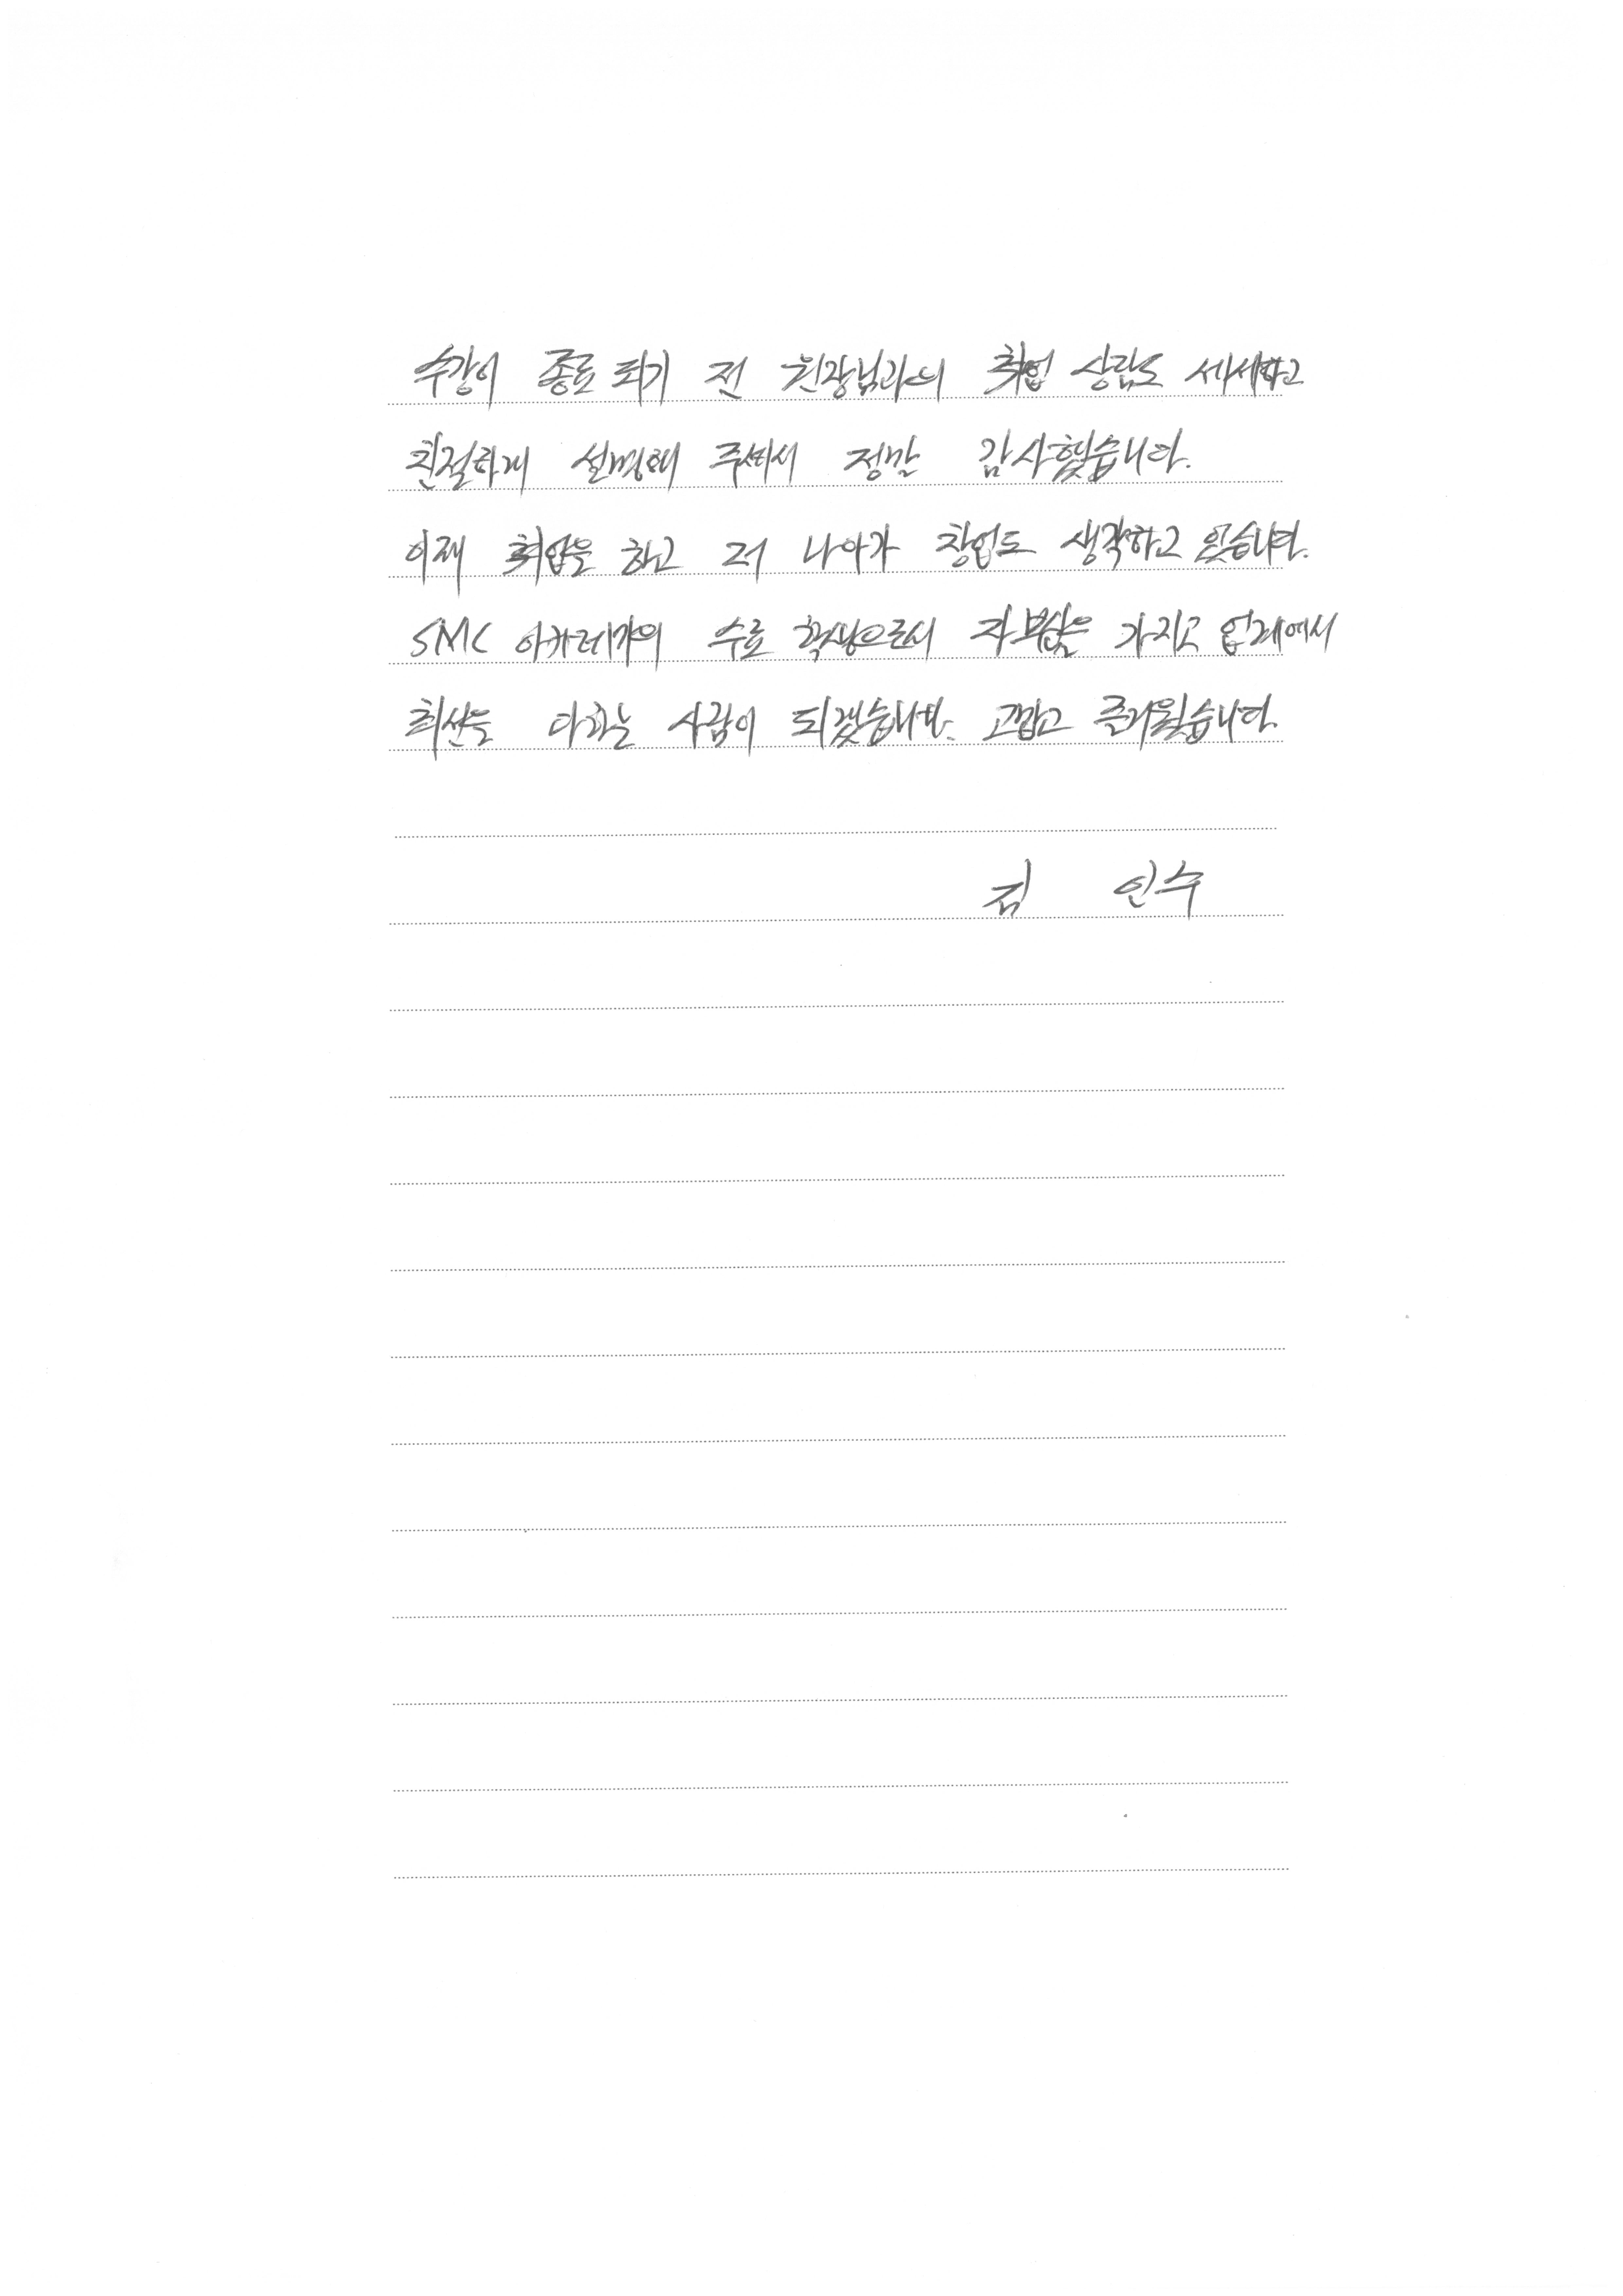 수강이 종료 되기 전 원장님과의 취업 상담도 세세하고
친절하게 설명해 주셔서 정말 감사했습니다.
이제 취업을 하고 더 나아가 창업도 생각하고 있습니다.
SMC 아카데미의 수료 학생으로서 자부심을 가지고 업계에서
최선을 다하는 사람이 되겠습니다. 고맙고 즐거웠습니다.
김 인수